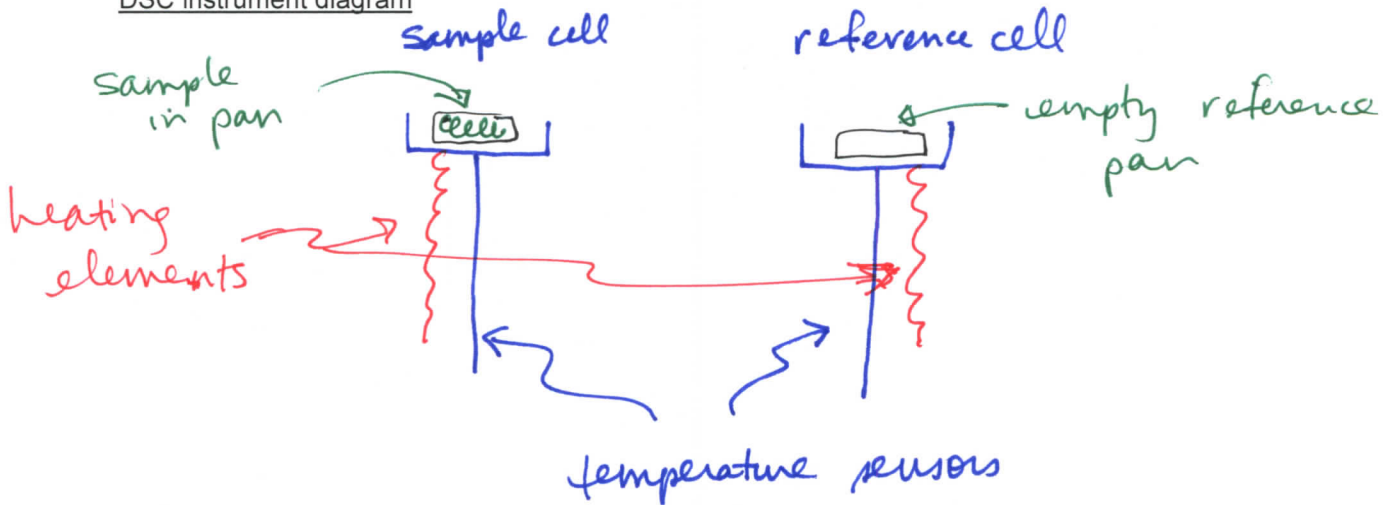 DSC instrument diagram
sample cell
reference cell
sample
in pan
empty reference
pan
heating
elements
temperature sensors